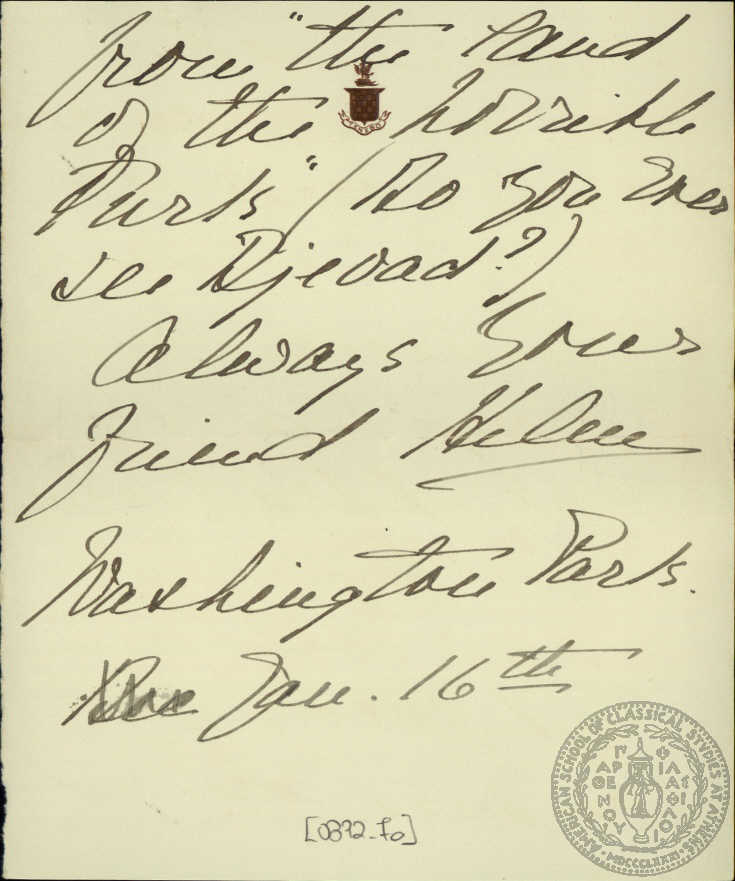 from "the land
of the horrible
Turk" (Do you ever
see Djevad?)
Always your
friend Helen
Washington Park.
Jan. 16th
[0372_Fo]
AMERICAN SCHOOL OF CLASSICAL STUDIES AT ATHENS
ΠΑΡΘΕΝΟΥ ΦΙΛΑΣ ΦΙΛΟΥ
MDCCCLXXXI